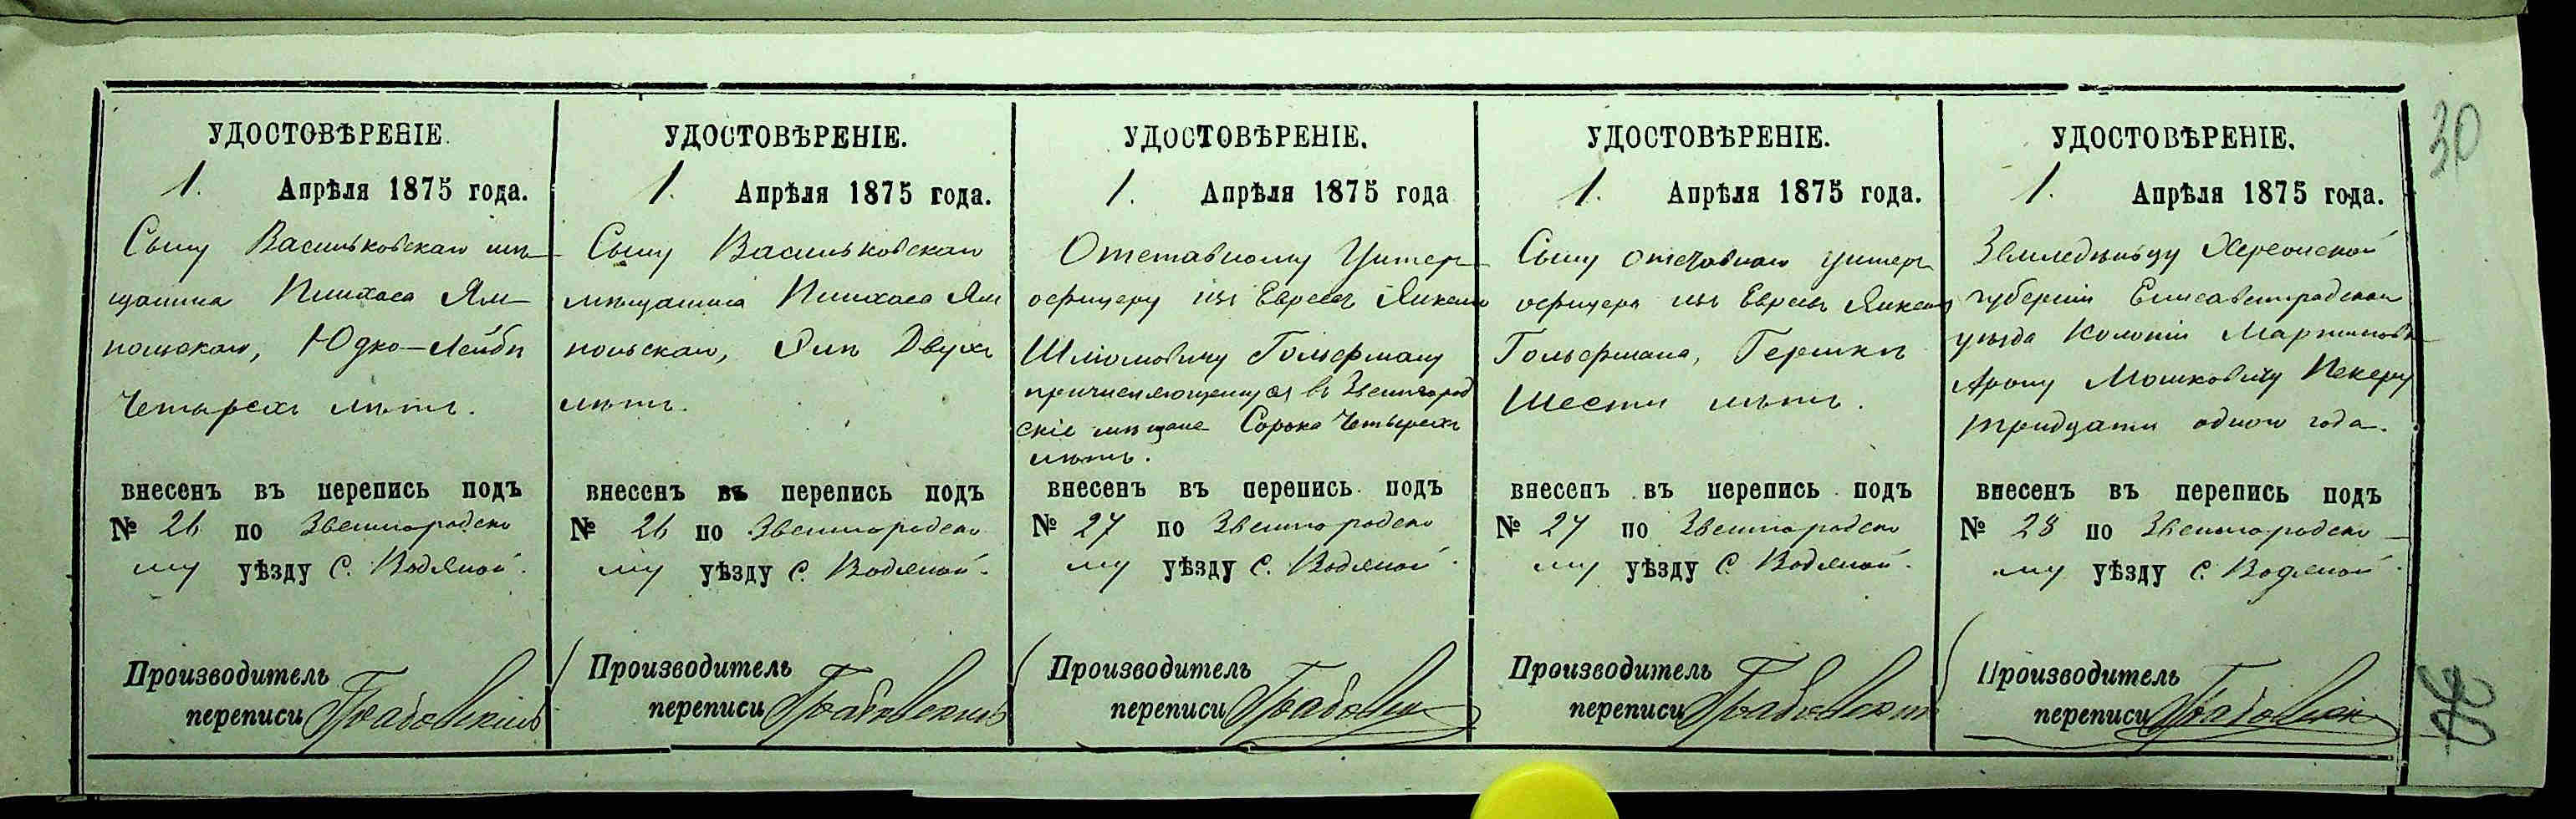 30
УДОСТОВѢРЕНІЕ.
1. Апрѣля 1875 года.
Сыну Васильковскаго мѣ-
щанина Пинхаса Ям-
польскаго, Юдко-Лейбѣ
Четырехъ лѣтъ.
внесенъ въ перепись подъ
№ 26 по Звенигородско
му уѣзду С. Водяной.
Производитель
переписи Грабовскій
УДОСТОВѢРЕНІЕ.
1. Апрѣля 1875 года.
Сыну Васильковскаго
мѣщанина Пинхаса Ям
польскаго, Элѣ Двухъ
лѣтъ.
внесенъ въ перепись подъ
№ 26 по Звенигородско
му уѣзду С. Водяной.
Производитель
переписи Грабовскій
УДОСТОВѢРЕНІЕ.
1. Апрѣля 1875 года
Отставному Унтер-
офицеру изъ Евреевъ Янкелю
Шліомовичу Гольфману
причисляющемуся въ Звенигород
скіе мѣщане Сорока Четырехъ
лѣтъ.
внесенъ въ перепись подъ
№ 27 по Звенигородско
му уѣзду С. Водяной.
Производитель
переписи Грабовскій
УДОСТОВѢРЕНІЕ.
1. Апрѣля 1875 года.
Сыну отставнаго унтеръ
офицера изъ Евреевъ Янкеля
Гольфмана, Гершкѣ
Шести лѣтъ.
внесенъ въ перепись подъ
№ 27 по Звенигородско
му уѣзду С. Водяной.
Производитель
переписи Грабовскій
УДОСТОВѢРЕНІЕ.
1. Апрѣля 1875 года.
Землѣдѣльцу Херсонской
губерніи Елисаветградскаго
уѣзда Колоніи Мартиновк
Арону Мошковичу Пекеру
тридцати одного года.
внесенъ въ перепись подъ
№ 28 по Звенигородско
му уѣзду С. Водяной.
Производитель
переписи Грабовскій